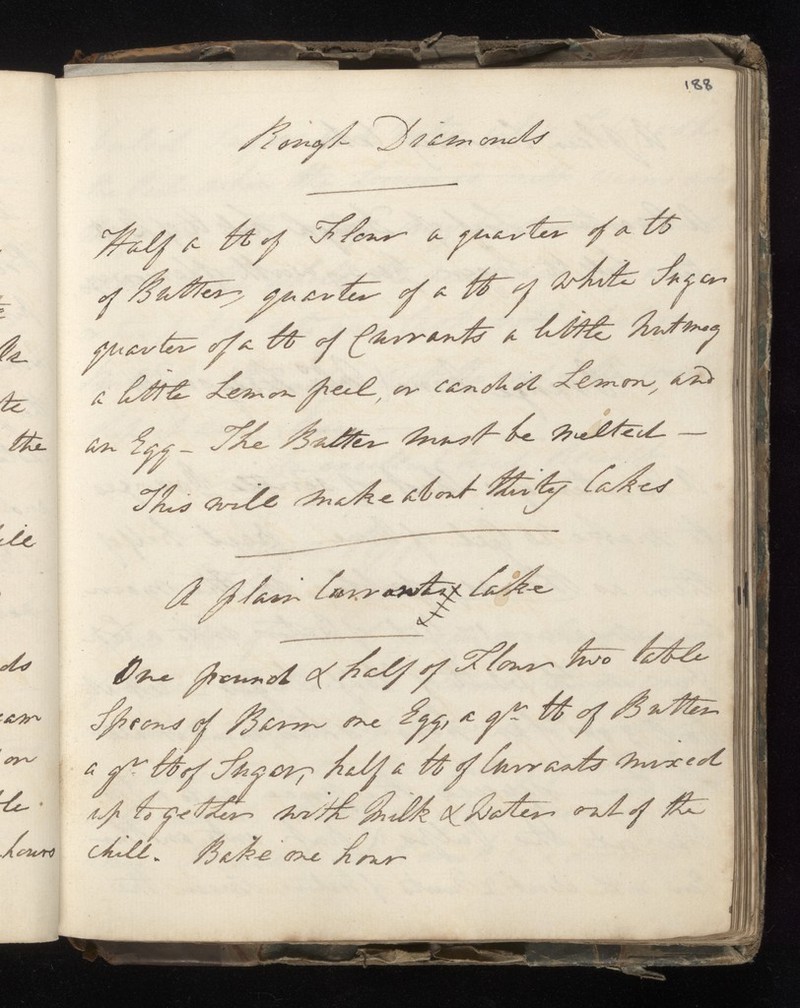 188
Rough Diamonds
Half a ℔ of Flour a quarter of a ℔
of Butter, quarter of a ℔ of white Sugar
quarter of a ℔ of Currants a little Nutmeg
a little Lemon peel, or candid Lemon, and
an Egg – The Butter must be melted –
This will make about thirty Cakes
A plain Currant Cake
One pound & half of Flour two table
Spoons of Barm one Egg, a qr ℔ of Butter
a qr ℔ of Sugar, half a ℔ of Currants mixed
up together with Milk & Water out of the
chill. Bake one hour
te
the
ds
on
hours